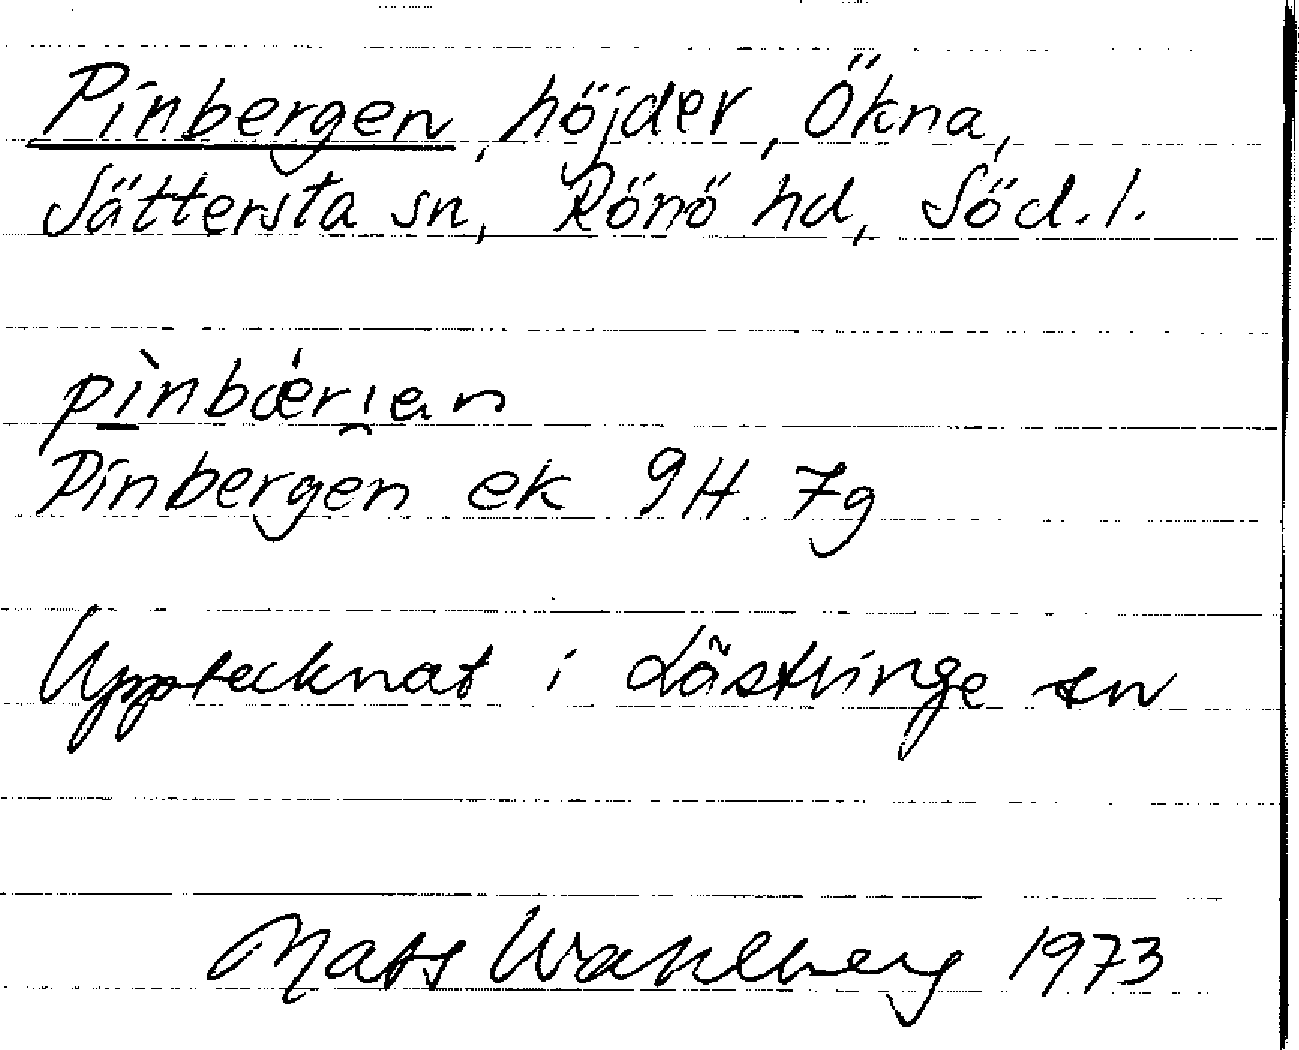 Pinbergen, höjder, Ökna,
Sättersta sn, Rönö hd, Söd. l.
pì̲nbǽri̯an
Pinbergen ek 9H 7g
Upptecknat i Lästringe sn
Mats Wahlberg 1973